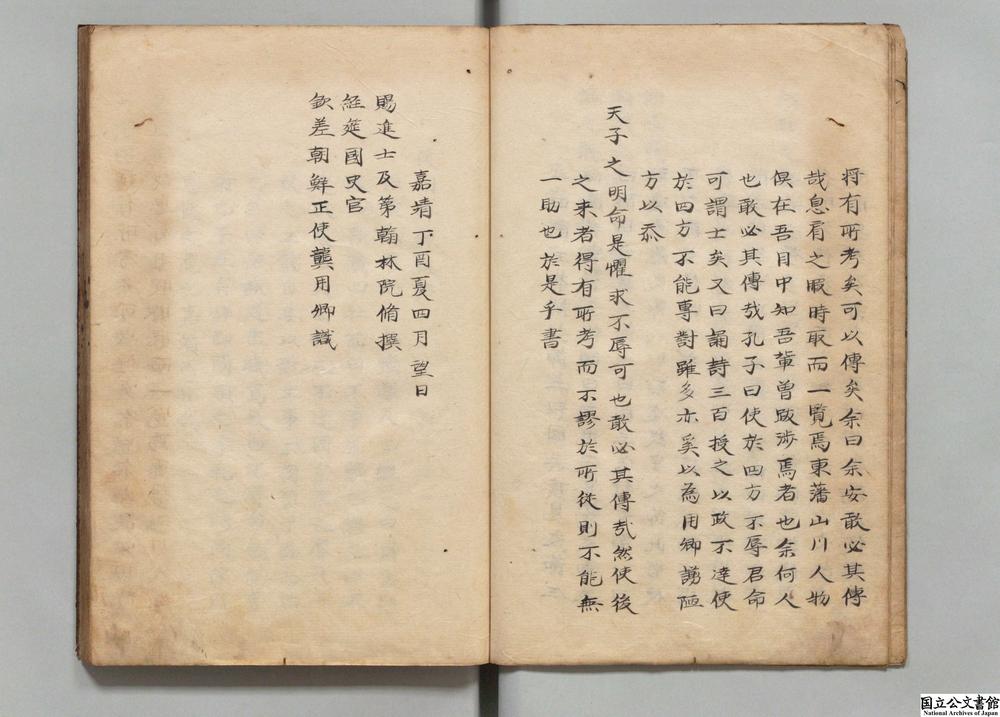 将有所考矣可以傳矣余曰余安敢必其傳
哉息肩之暇時取而一覽焉東藩山川人物
俱在吾目中知吾軰曽跋涉焉者也余何人
也敢必其傳哉孔子曰使於四方不辱君命
可謂士矣又曰誦詩三百授之以政不達使
於四方不能專對雖多亦奚以為用卿謭陋
方以忝
天子之明命是懼求不辱可也敢必其傳哉然使後
之来者得有所考而不謬於所從則不能無
一助也於是乎書
嘉靖丁酉夏四月望日
賜進士及第翰林院脩撰
經筵國史官
欽差朝鮮正使龔用卿識
国立公文書館
National Archives of Japan